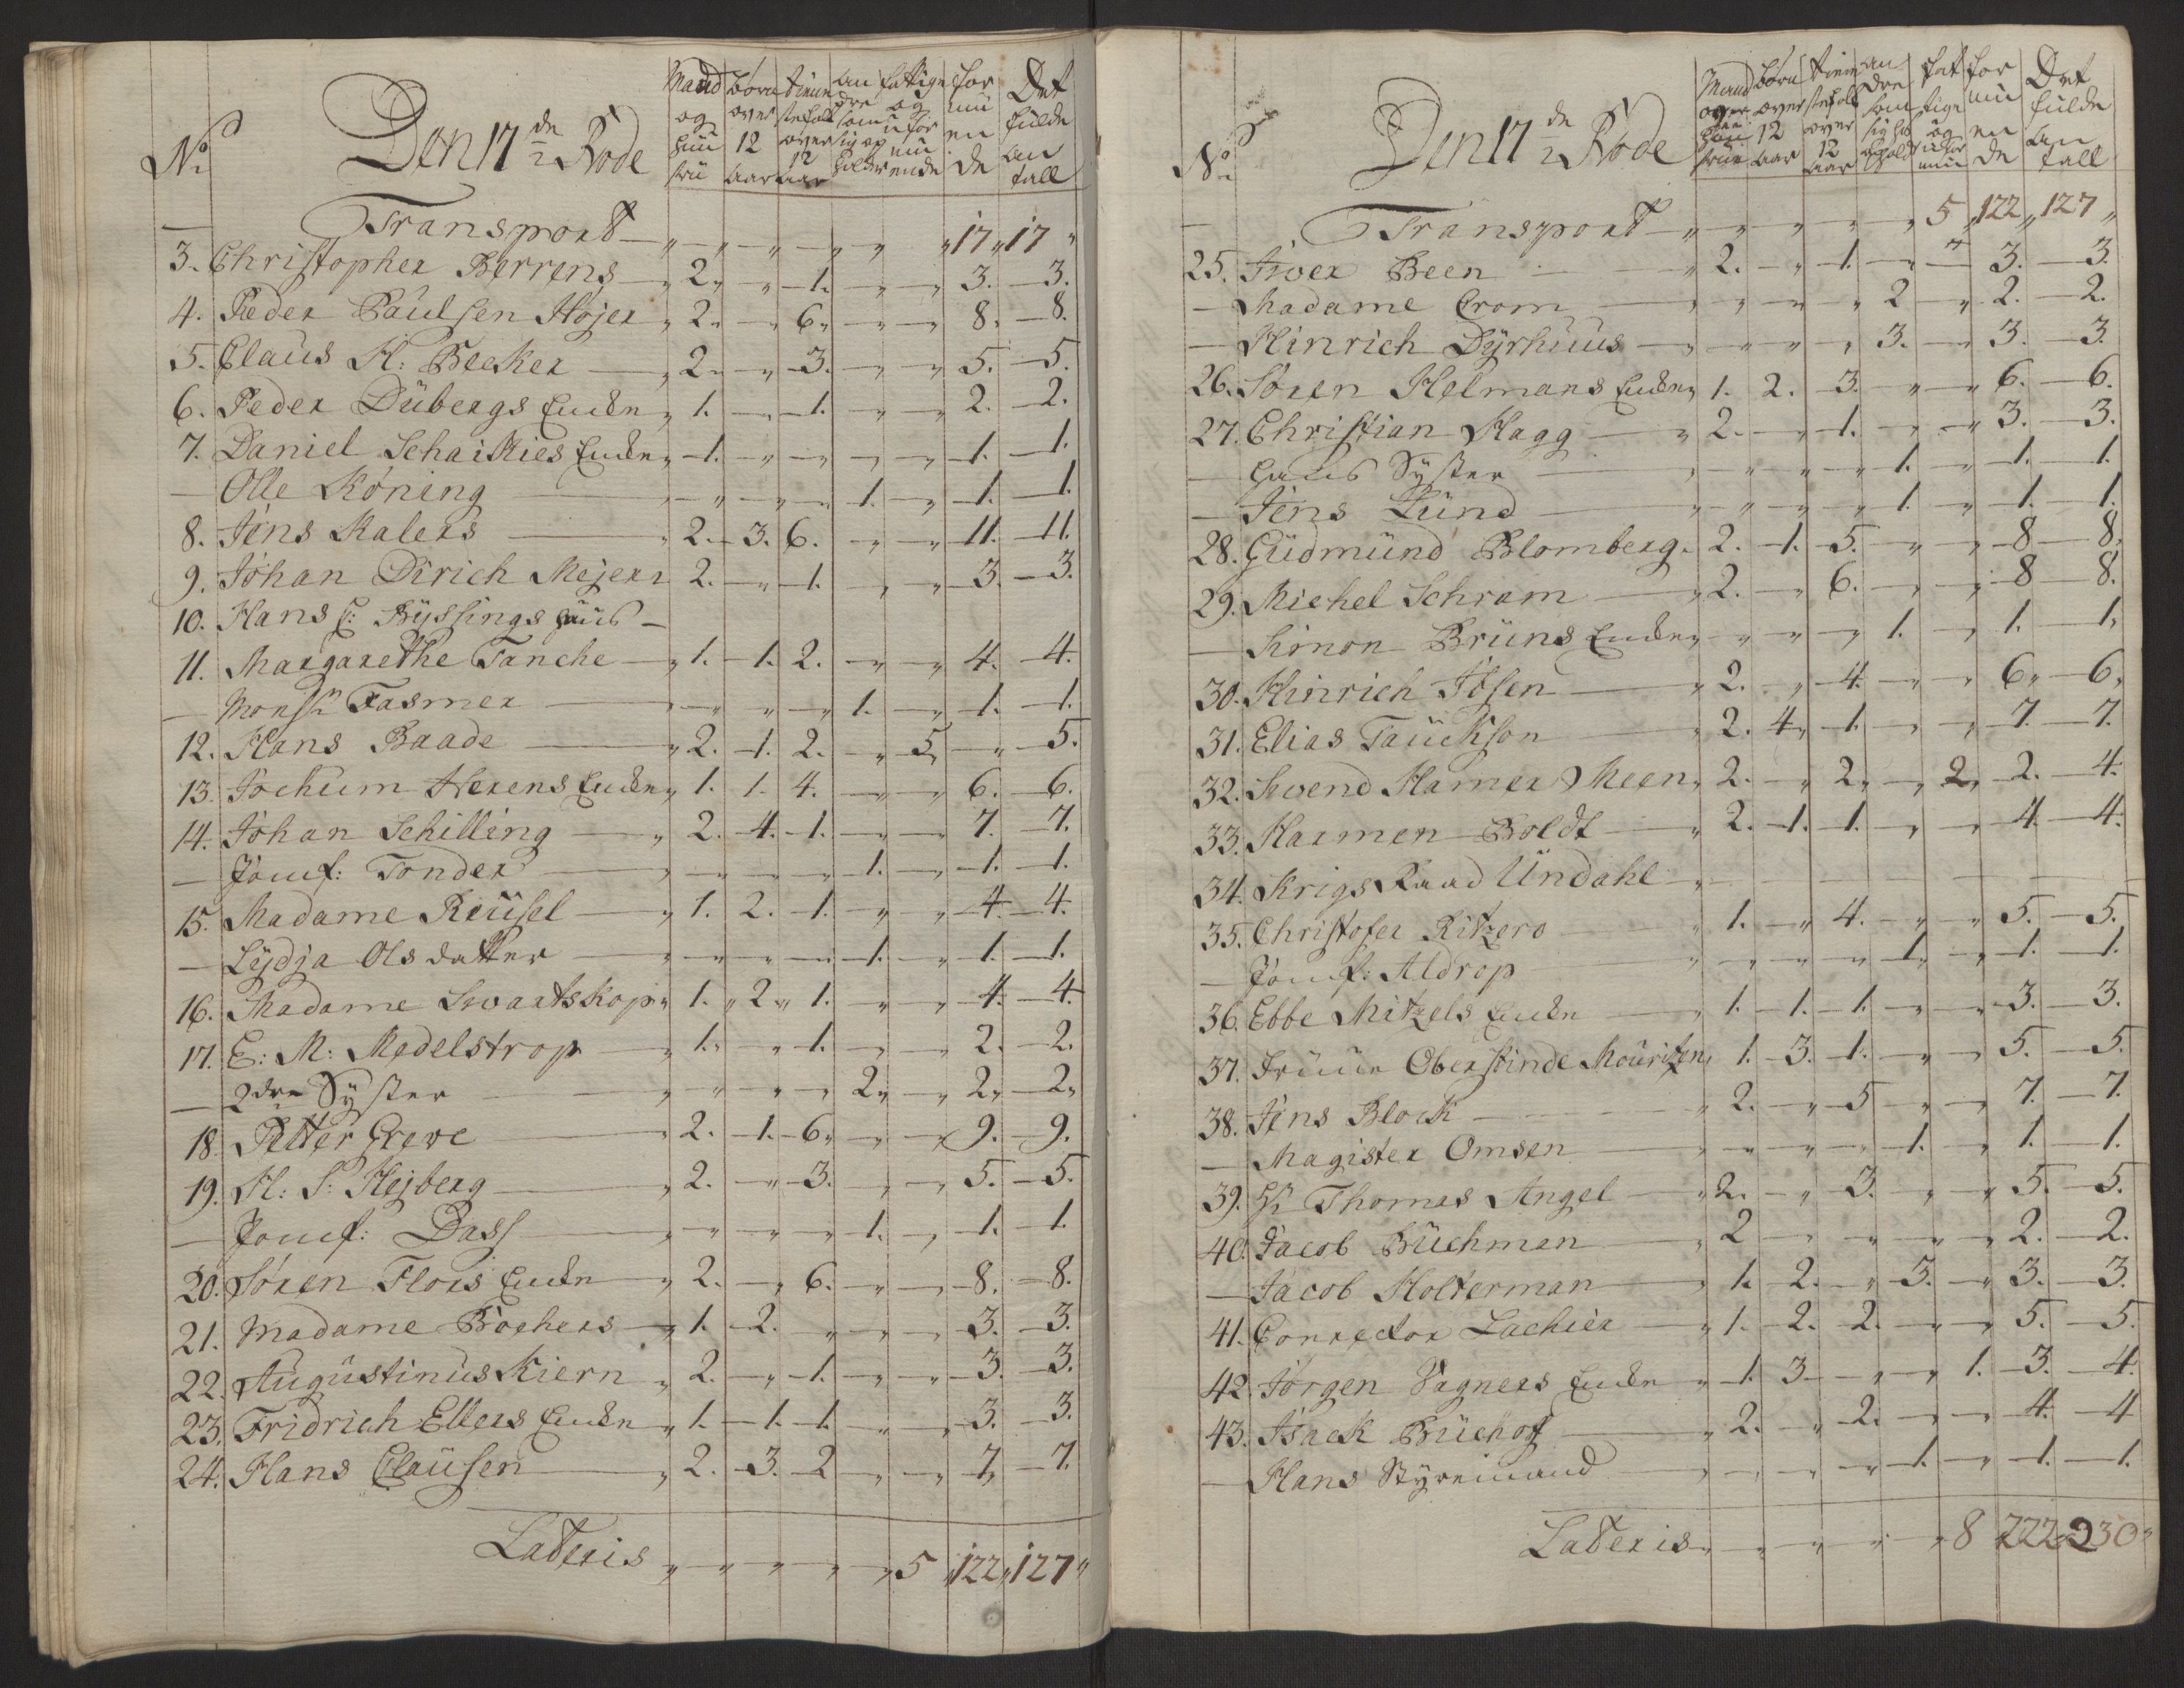 No
Den 17de Rode
Mand og Huu strü
Børn over 12 aar
tienn stefolk over 12 aar
an dre som sig op holder
fattige og ufor mu ende
for mü en de
Det fulde an tall
— Transport — „ — „ — „ — „ „ „ 17 „ 17 „
3. Christopher Berrens — „ 2 „ „ — 1. — „ — „ 3. — 3.
4. Peder Paulsen Höjer „ 2 „ — „ 6 „ — „ — „ 8. — 8.
5. Claus H: Becker — „ 2 — „ — 3. — „ — „ 5. — 5.
6. Peder Dübergs Enckn „ 1. — „ — 1. — „ — „ 2. — 2.
7. Daniel Schaikies Enckn „ — 1. — „ — „ — „ — „ — 1. — 1.
— Olle Köning — „ — „ — „ — „ 1. — „ — 1. — 1.
8. Jens Kalers — „ 2. — 3. 6. — „ — „ 11. — 11.
9. Johan Dirich Mejers 2. — „ — 1. — „ — „ — 3. — 3.
10. Hans C: Byssings Huus —
11. Margarethe Tanche — „ 1. — 1. 2. — „ — „ 4. — 4.
— Monsr Fasmer — „ — „ — „ — „ 1. — „ — 1. — 1.
12. Hans Baade — „ 2. — 1. 2. — „ 5 — „ — 5.
13. Jochum Herens Enckn „ 1. 1. 4. — „ — „ 6. — 6.
14. Johan Schilling — „ 2. — 4. — 1. — „ — „ 7. — 7.
— Jomf: Tonder — „ — „ — „ — „ 1. — „ — 1. — 1.
15. Madame Reusel — „ 1. 2. — 1. — „ „ — 4. — 4.
— Lydja Olsdatter — „ — „ — „ — „ 1. — „ — 1. — 1.
16. Madame Swartskop „ 1. „ 2 „ 1. — „ — „ 4. — 4.
17. E: M: Medelstrop — „ 1. — „ — 1. — „ — „ 2. — 2.
— 2dre Syster — „ — „ — „ — „ 2 „ — „ 2 „ — 2 „
18. Petter Greve — „ 2. — 1. — 6 „ — „ — „ 9. — 9.
19. H: S: Hejberg — „ 2. — „ — 3. — „ — „ 5. — 5.
— Jomf: Dass — „ — „ — „ — „ 1. — „ 1. — 1.
20. Sören Flors Enckn — „ 2. — „ 6. — „ — „ — 8. — 8.
21. Madame Bochers — „ 1. — 2. „ — „ — „ 3. — 3.
22. Augustinus Kiern „ 2. — „ — 1. — „ — „ — 3. — 3.
23. Fridrich Ellers Enckn — „ 1. — 1. — 1. — „ — „ — 3. — 3.
24. Hans Clausen — „ 2. — 3. — 2 — „ — „ — 7 „ — 7.
Lateris „ — „ — „ — „ — „ 5 „ 122 „ 127 „
No
Den 17de Rode
Mand og Huu strue
Børn over 12 aar
tienn stefolk over 12 aar
an dre som sig op hold
fat tige og ufor mu
for mü en de
Det fulde an tall
— Transport — „ — „ — „ — „ — „ 5 „ 122 „ 127 „
25. Iver Been — „ 2. — „ — 1. — „ — „ — 3. — 3.
— Madame Crom — „ — „ — „ — „ 2 — „ 2. — 2.
— Hinrich Dyrhuus — „ — „ — „ — „ 3. — „ 3. — 3.
26. Sören Helmans Enckn „ 1. 2. — 3. — „ — „ 6. — 6.
27. Christian Hagg — „ 2. — „ — 1. — „ — „ 3. — 3.
— Hans Syster — „ — „ — „ — „ 1. — „ — 1. — 1.
— Jens Lund — „ — „ — „ — „ 1. — „ — 1. — 1.
28. Gudmund Blomberg. 2. — 1. — 5. — „ — „ — 8 — 8.
29. Michel Schram — „ 2. — „ 6. — „ — „ — 8 — 8.
— Simon Bruns Enckn „ — „ — „ — „ 1. — „ 1. — 1.
30. Hinrich Ibsen — „ 2. — „ — 4. — „ — „ 6 „ — 6 „
31. Elias Tauckson — „ 2. 4 „ — 1. — „ — „ 7. — 7.
32. Swend Hamer Meen „ 2. — „ 2 „ — „ 2 „ — 2. — 4.
33. Harmen Boldt — „ 2. — 1. — 1. — „ — „ 4. — 4.
34. Krigs Raad Undahl — „ — — — —
35. Christofer Ritzero — „ 1. — „ 4. — „ — „ 5. — 5.
— Jomf: Aldrop — „ — „ — „ — „ 1. — „ — 1. — 1.
36. Ebbe Mitzels Enckn — „ 1. — 1. — 1. — „ — „ — 3. — 3.
37. Fruue Oberstinde Mouritzen „ 1. — 3. — 1. — „ — „ 5. — 5.
38. Jens Block — „ 2. — „ — 5 — „ — „ 7. — 7.
— Magister Omsen — „ — „ — „ — „ 1. — „ 1. — 1.
39. Hr Thomas Angel — „ 2. — „ 3. — „ — „ 5. — 5.
40. Jacob Buchman — „ 2 — „ — „ — „ — „ 2. — 2.
— Jacob Holterman — „ 1. — 2. — „ 3. — „ 3. — 3.
41. Conrector Lachier — „ 1. — 2. — 2. — „ — „ 5. — 5.
42. Jörgen Vagners Enckn — „ 1. 3 — „ — „ 1. — 3. — 4.
43. Isack Buchoff — „ 2. — „ 2. — „ — „ 4. — 4
— Hans Styremand — „ — „ — „ — „ 1. — „ — 1. — 1.
Lateris „ — „ — „ — „ — „ 8 222 230 „